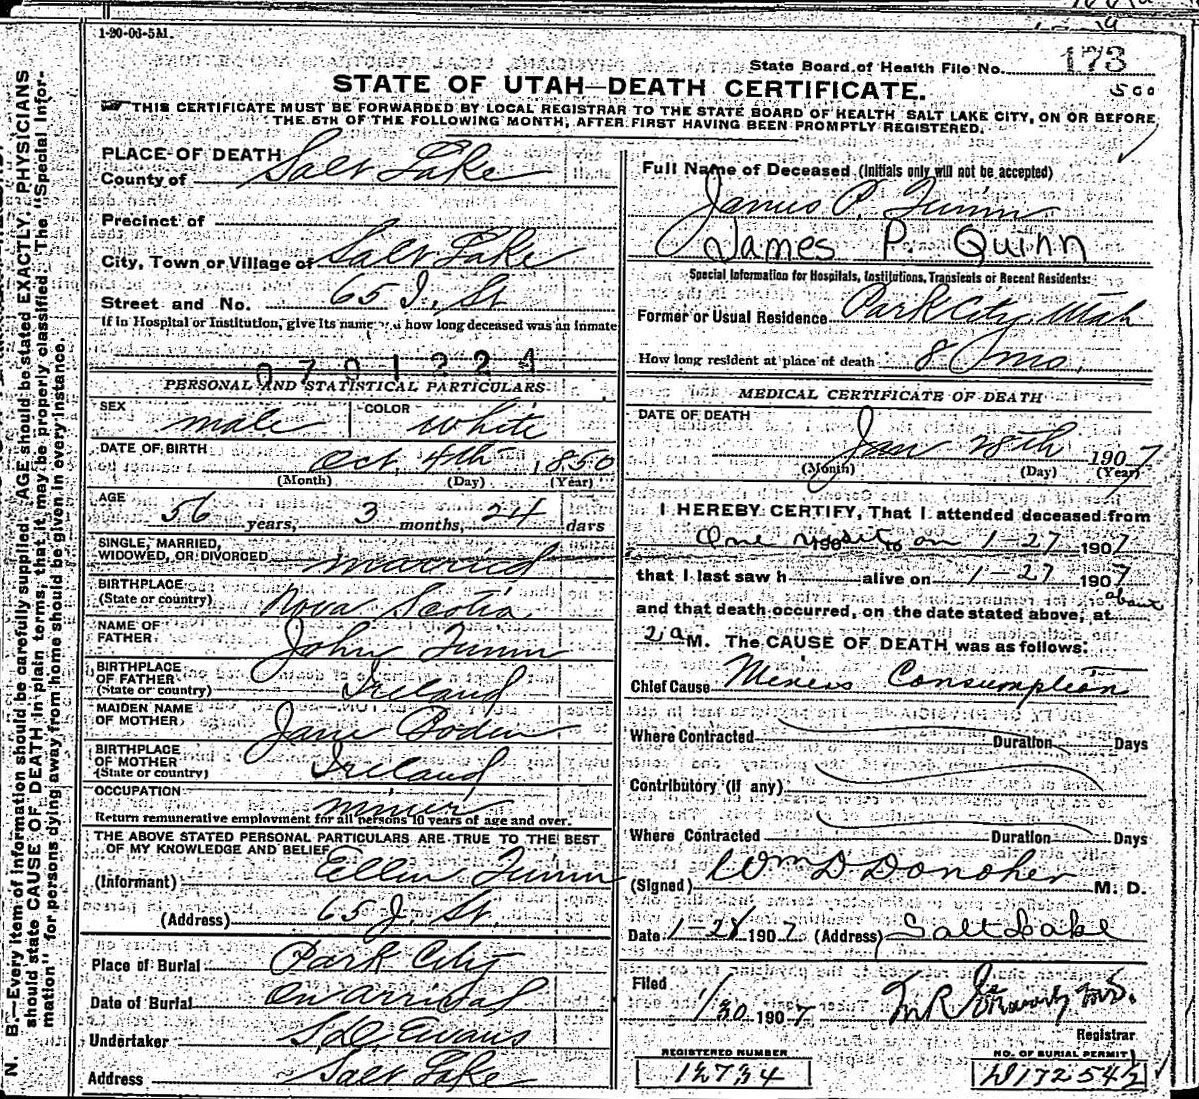 1-20-06-5M.
State Board of Health File No. 173
500
STATE OF UTAH—DEATH CERTIFICATE.
THIS CERTIFICATE MUST BE FORWARDED BY LOCAL REGISTRAR TO THE STATE BOARD OF HEALTH, SALT LAKE CITY, ON OR BEFORE
THE 5TH OF THE FOLLOWING MONTH, AFTER FIRST HAVING BEEN PROMPTLY REGISTERED.
N. B.—Every item of information should be carefully supplied. AGE should be stated EXACTLY. PHYSICIANS
should state CAUSE OF DEATH in plain terms, that it may be properly classified. The "Special Infor-
mation" for persons dying away from home should be given in every instance.
PLACE OF DEATH
County of Salt Lake
Precinct of
City, Town or Village of Salt Lake
Street and No. 65 J. St
If in Hospital or Institution, give its name and how long deceased was an inmate
0701224
PERSONAL AND STATISTICAL PARTICULARS
SEX male COLOR white
DATE OF BIRTH Oct. 4th 1850
(Month) (Day) (Year)
AGE 56 years, 3 months, 24 days
SINGLE, MARRIED,
WIDOWED, OR DIVORCED married
BIRTHPLACE
(State or country) Nova Scotia
NAME OF
FATHER John Quinn
BIRTHPLACE
OF FATHER
(State or country) Ireland
MAIDEN NAME
OF MOTHER Jane
BIRTHPLACE
OF MOTHER
(State or country) Ireland
OCCUPATION miner
Return remunerative employment for all persons 10 years of age and over.
THE ABOVE STATED PERSONAL PARTICULARS ARE TRUE TO THE BEST
OF MY KNOWLEDGE AND BELIEF
(Informant) Ellen Quinn
(Address) 65 J. St.
Place of Burial Park City
Date of Burial on arrival
Undertaker S.D. Evans
Address Salt Lake
Full Name of Deceased (Initials only will not be accepted)
James P. Quinn
James P. Quinn
Special Information for Hospitals, Institutions, Transients or Recent Residents:
Former or Usual Residence Park City Utah
How long resident at place of death 8 mo.
MEDICAL CERTIFICATE OF DEATH
DATE OF DEATH
Jan 28th 1907
(Month) (Day) (Year)
I HEREBY CERTIFY, That I attended deceased from
One visit 190 to on 1-27 1907
that I last saw h alive on 1-27 1907
and that death occurred, on the date stated above, at about
2 a M. The CAUSE OF DEATH was as follows:
Chief Cause Miners Consumption
Where Contracted Duration Days
Contributory (if any)
Where Contracted Duration Days
(Signed) Wm D Donoher M. D.
Date 1-28 1907 (Address) Salt Lake
Filed 1/30 1907 M.D.
Registrar
REGISTERED NUMBER
12734
NO. OF BURIAL PERMIT